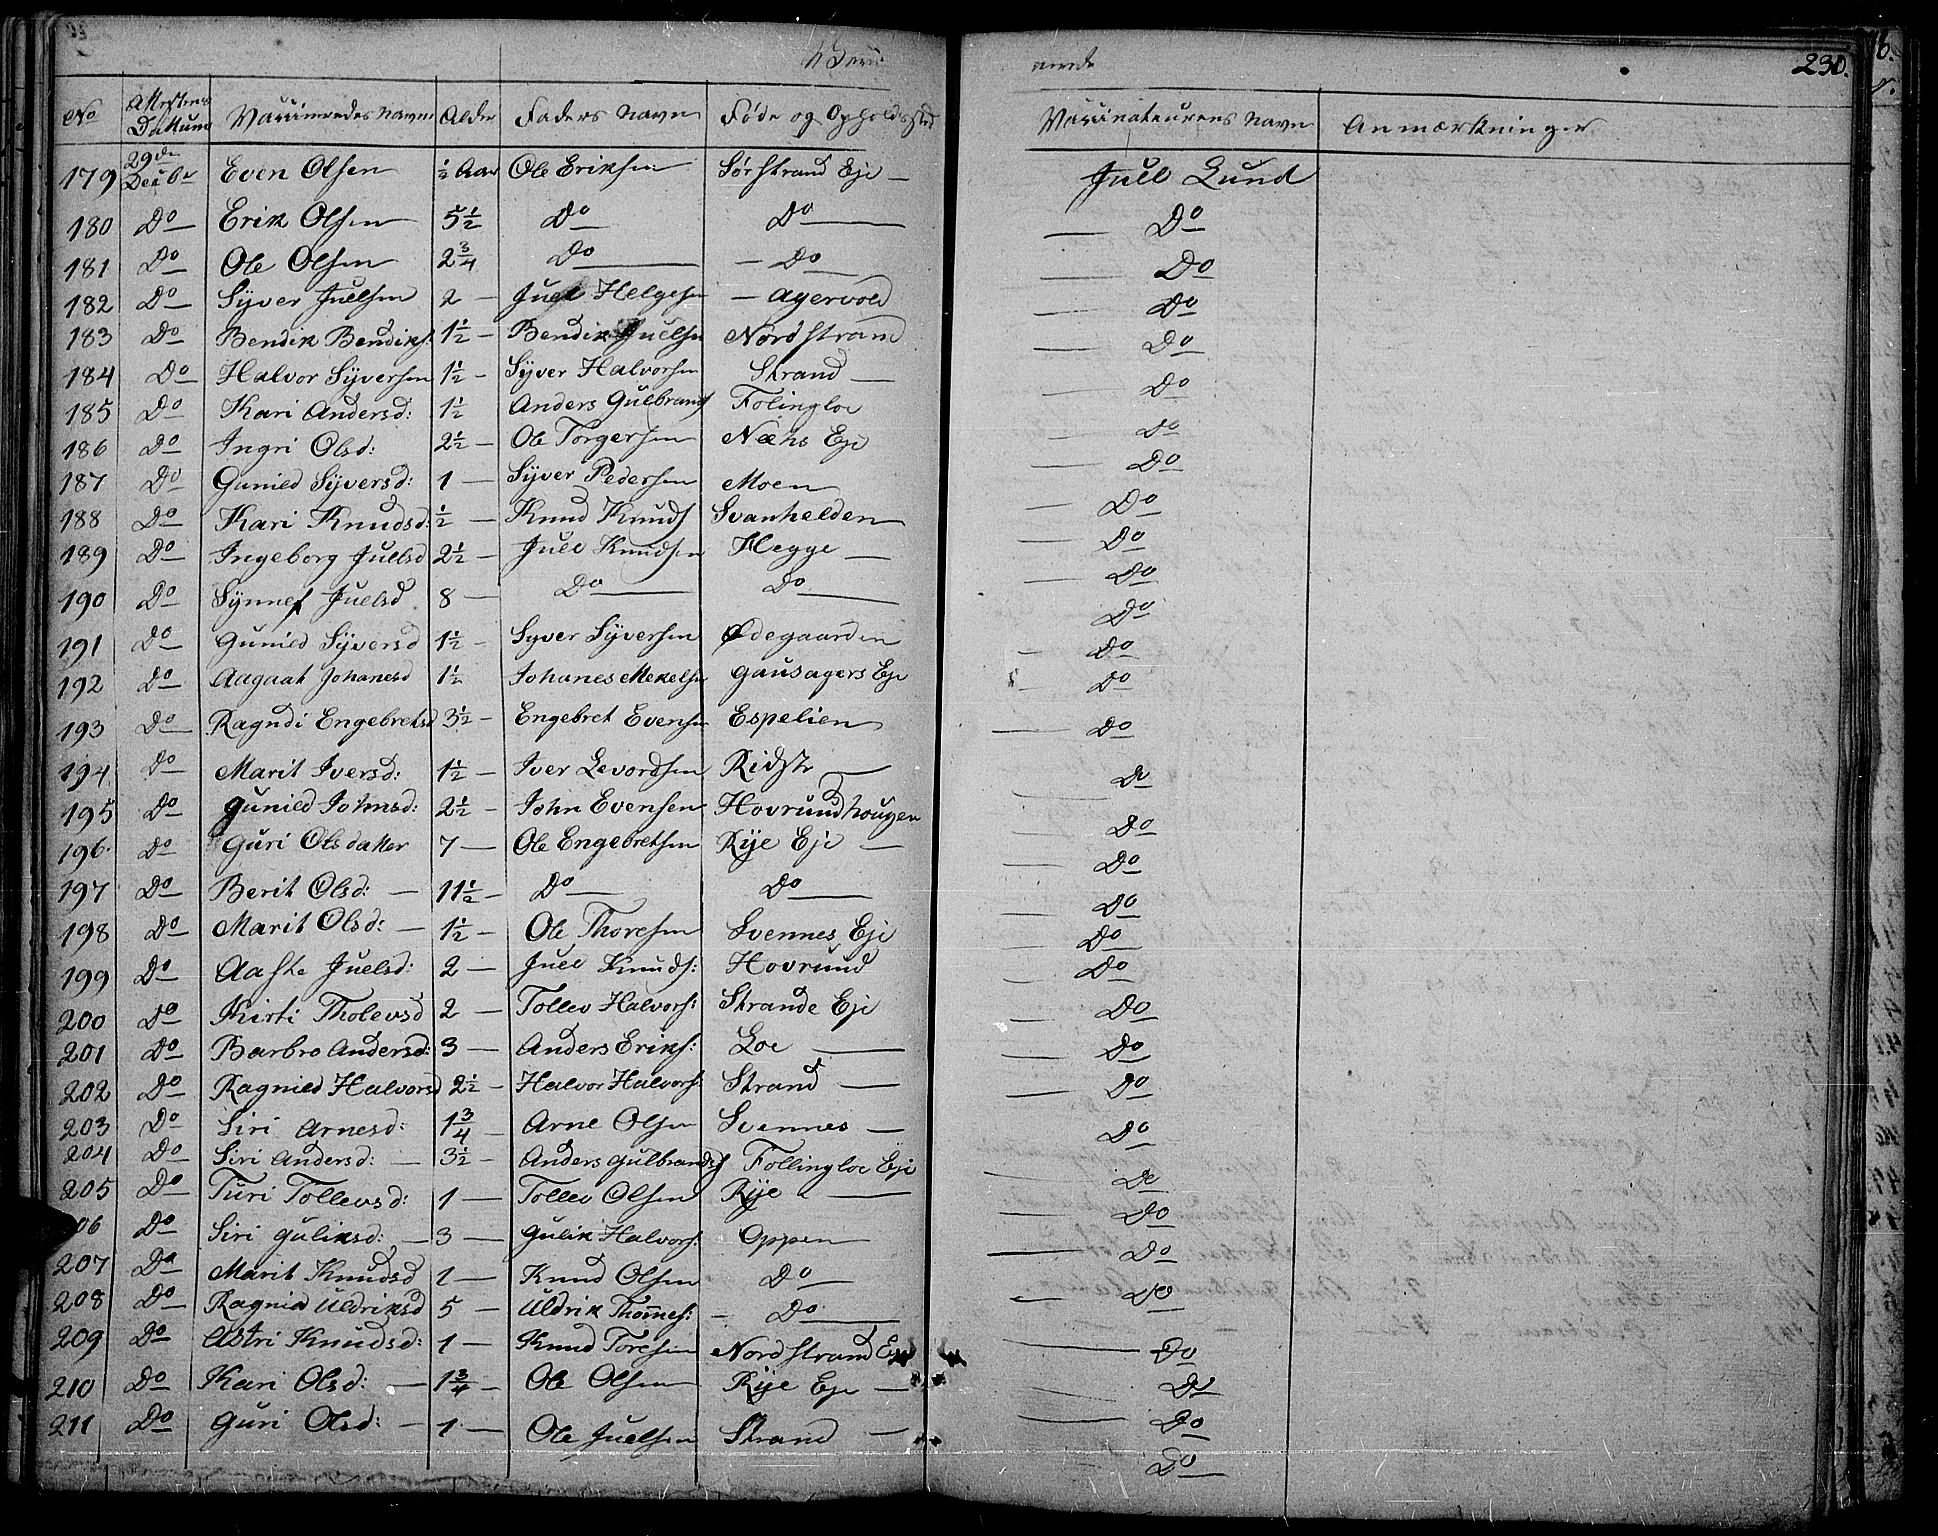 230.
No Attestens Datum Vaccineredes Navne Alder Faders Navn Føde og Opholdssted Vaccinateurens Navn Anmærkninger
179 29de Decbr Even Olsen ½ Aar Ole Eriksen Sørstrand Eje — Juel Lund
180 Do Erik Olsen 5½ Do Do — Do
181 Do Ole Olsen 2¾ Do — Do — Do
182 Do Syver Juelsen 2 — Juel Helgesen — Agervold — Do
183 Do Bendik Bendiks: 1½ — Bendik Juelsen Nordstrand — Do
184 Do Halvor Syversen 1½ — Syver Halvorsen Strand — Do
185 Do Kari Andersd: 1½ Anders Gulbrands Folingloe — Do
186 Do Ingri Olsd: 2½ — Ole Torgersen Næhs Eje — Do
187 Do Gunild Syversd: 1 — Syver Pedersen Moen — Do
188 Do Kari Knudsd: ½ — Knud Knuds Svanhelden — Do
189 Do Ingeborg Juelsd 2½ — Juel Knudsen Hegge — Do
190 Do Synnef Juelsd 8 — Do Do — Do
191 Do Gunild Syversd 1½ — Syver Syversen Ødegaarden — Do
192 Do Aagaat Johanesd 1½ Johanes Mekelsen Gausagers Eje — Do
193 Do Ragndi Engebretsd 3½ — Engebret Evensen Espelien — Do
194 Do Marit Iversd: 1½ — Iver Levordsen Ridste — Do
195 Do Gunild Johnsd: 2½ — John Evensen Hovrundhougen — Do
196. Do Guri Olsdatter 7 — Ole Engebretsen Rye Eje — Do
197 Do Berit Olsd: — 11½ — Do Do — Do
198 Do Marit Olsd: — 1½ — Ole Thoresen Svennes Eje — Do
199 Do Aaste Juelsd: 2 — Juel Knuds: Hovrund — Do
200 Do Kirti Tholevsd 2 — Tollev Halvors: Strande Eje — Do
201 Do Barbro Andersd: 3 — Anders Eriks: Loe — Do
202 Do Ragnild Halvorsd 2½ — Halvor Halvors: Strand — Do
203 Do Siri Arnesd: 1¾ — Arne Olsen Svennes — Do
204 Do Siri Andersd: — 3½ — Anders Gulbrands Follingloe Eje — Do
205 Do Turi Tollevsd: 1 — Tollev Olsen Rye — Do
06 Do Siri Guliksd: — 3 — Gulik Halvors: Oppen — Do
207 Do Marit Knudsd 1 — Knud Olsen Do — Do
208 Do Ragnid Uldriksd 5 — Uldrik Thomes: — Do — Do
209 Do Astri Knudsd: 1 — Knud Toresen Nordstrand Eje — Do
210 Do Kari Olsd: — 1¾ — Ole Olsen Rye Eje — Do
211 Do Guri Olsd: — 1 — Ole Juelsen Strand — Do
Do